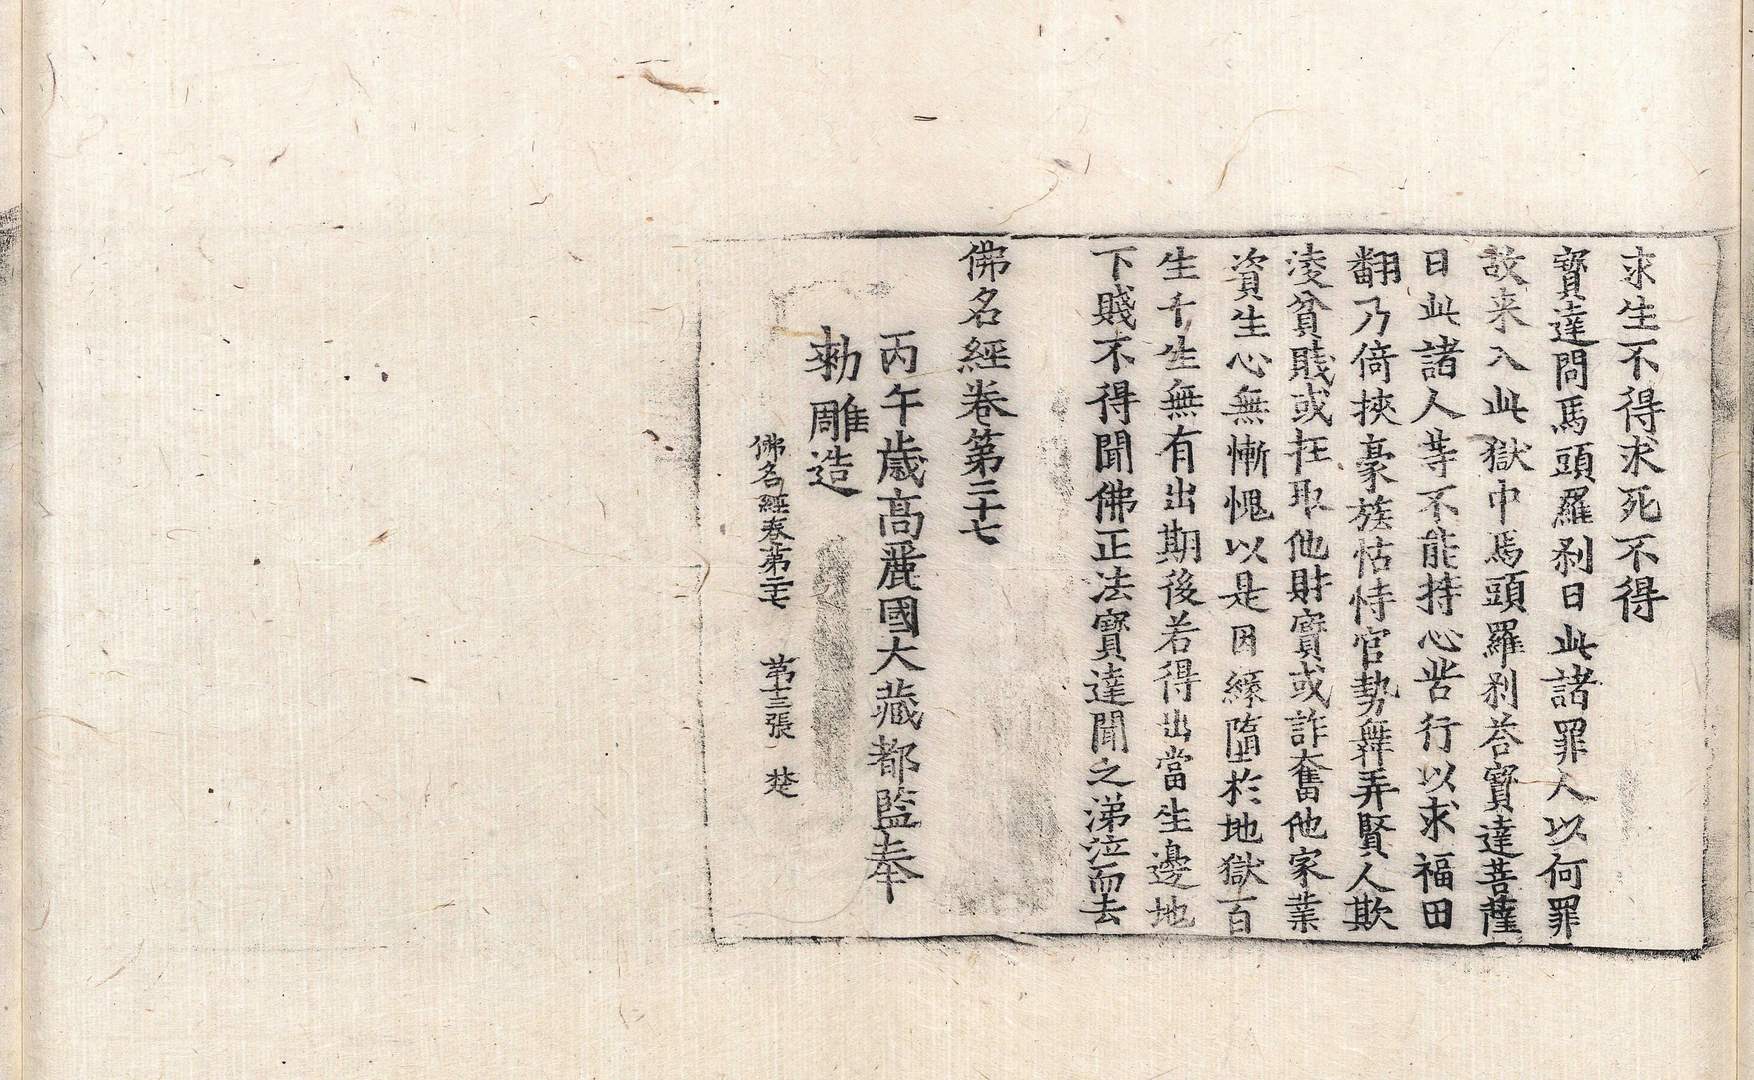 求生不得求死不得
寶達問馬頭羅刹曰此諸罪人以何罪
故来入此獄中馬頭羅刹荅寶達菩薩
曰此諸人等不能持心苦行以求福田
翻乃倚挾豪族怙恃官勢舞弄賢人欺
淩貧賎或抂取他財寶或詐奪他家業
資生心無慚愧以是因縁墮於地獄百
生千生無有出期後若得出當生邊地
下賤不得聞佛正法寶達聞之涕泣而去
佛名經卷第二十七
丙午歳高麗國大藏都監奉
勅雕造
佛名經卷第二七 第十三張 楚